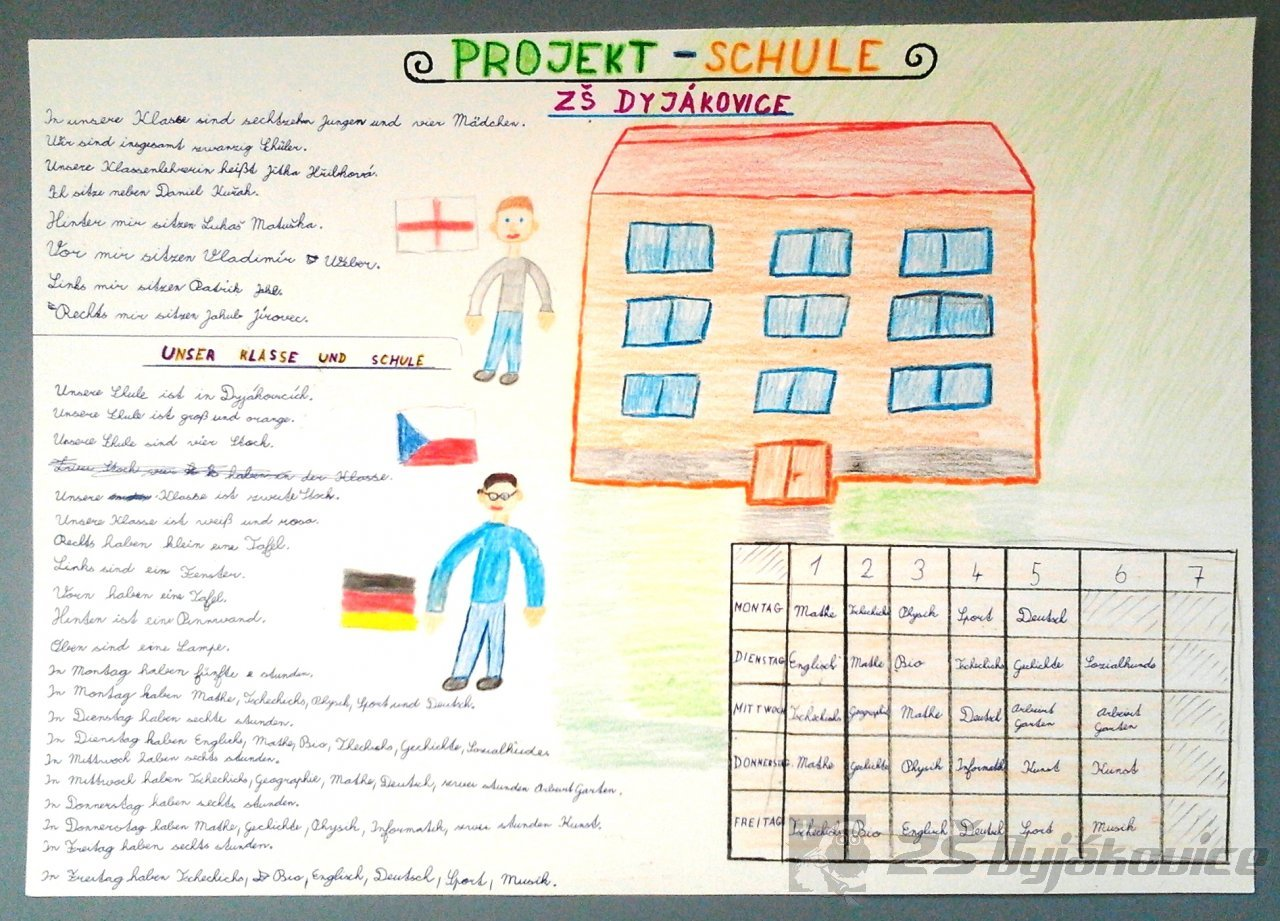 PROJEKT - SCHULE
ZŠ DYJÁKOVICE
In unsere Klasse sind sechtzehn Jungen und vier Mädchen.
Wir sind insgesamt zwanzig Schüler.
Unsere Klassenlehrerin heißt Jitka
Ich sitze neben Daniel
Hinter mir sitzen Lukáš Matuška.
Vor mir sitzen Vladimír Weber.
Links mir sitzen Patrik
Rechts mir sitzen Jakub Jírovec.
UNSER KLASSE UND SCHULE
Unsere Schule ist in Dyjákovcích.
Unsere Schule ist groß und orange.
Unsere Schule sind vier Stock.
haben in der Klasse.
Unsere Klasse ist zweite Stock.
Unsere Klasse ist weiß und rosa.
Rechts haben klein eine Tafel.
Links sind ein Fenster.
Vorn haben eine Tafel.
Hinten ist eine Pinnwand.
Oben sind eine Lampe.
In Montag haben fünfte stunden.
In Montag haben Mathe, Tschechichs, Physik, Sport und Deutsch.
In Dienstag haben sechte stunden.
In Dienstag haben Englichs, Mathe, Bio, Tschechichs, Geschichte, Sozialkunde
In Mittwoch haben sechts stunden.
In Mittwoch haben Tschechichs, Geographie, Mathe, Deutsch, zwei stunden Arbeit Garten.
In Donnerstag haben sechts stunden.
In Donnerstag haben Mathe, Geschichte, Physik, Informatik, zwei stunden Kunst.
In Freitag haben sechts stunden.
In Freitag haben Tschechichs, Bio, Englisch, Deutsch, Sport, Musik.
1 2 3 4 5 6 7
MONTAG Mathe Tschechichs Physik Sport Deutsch
DIENSTAG Englisch Mathe Bio Tschechichs Geschichte Sozialkunde
MITTWOCH Tschechichs Geographie Mathe Deutsch Arbeit Garten Arbeit Garten
DONNERSTAG Mathe Geschichte Physik Informatik Kunst Kunst
FREITAG Tschechichs Bio Englisch Deutsch Sport Musik
ZŠ Dyjákovice